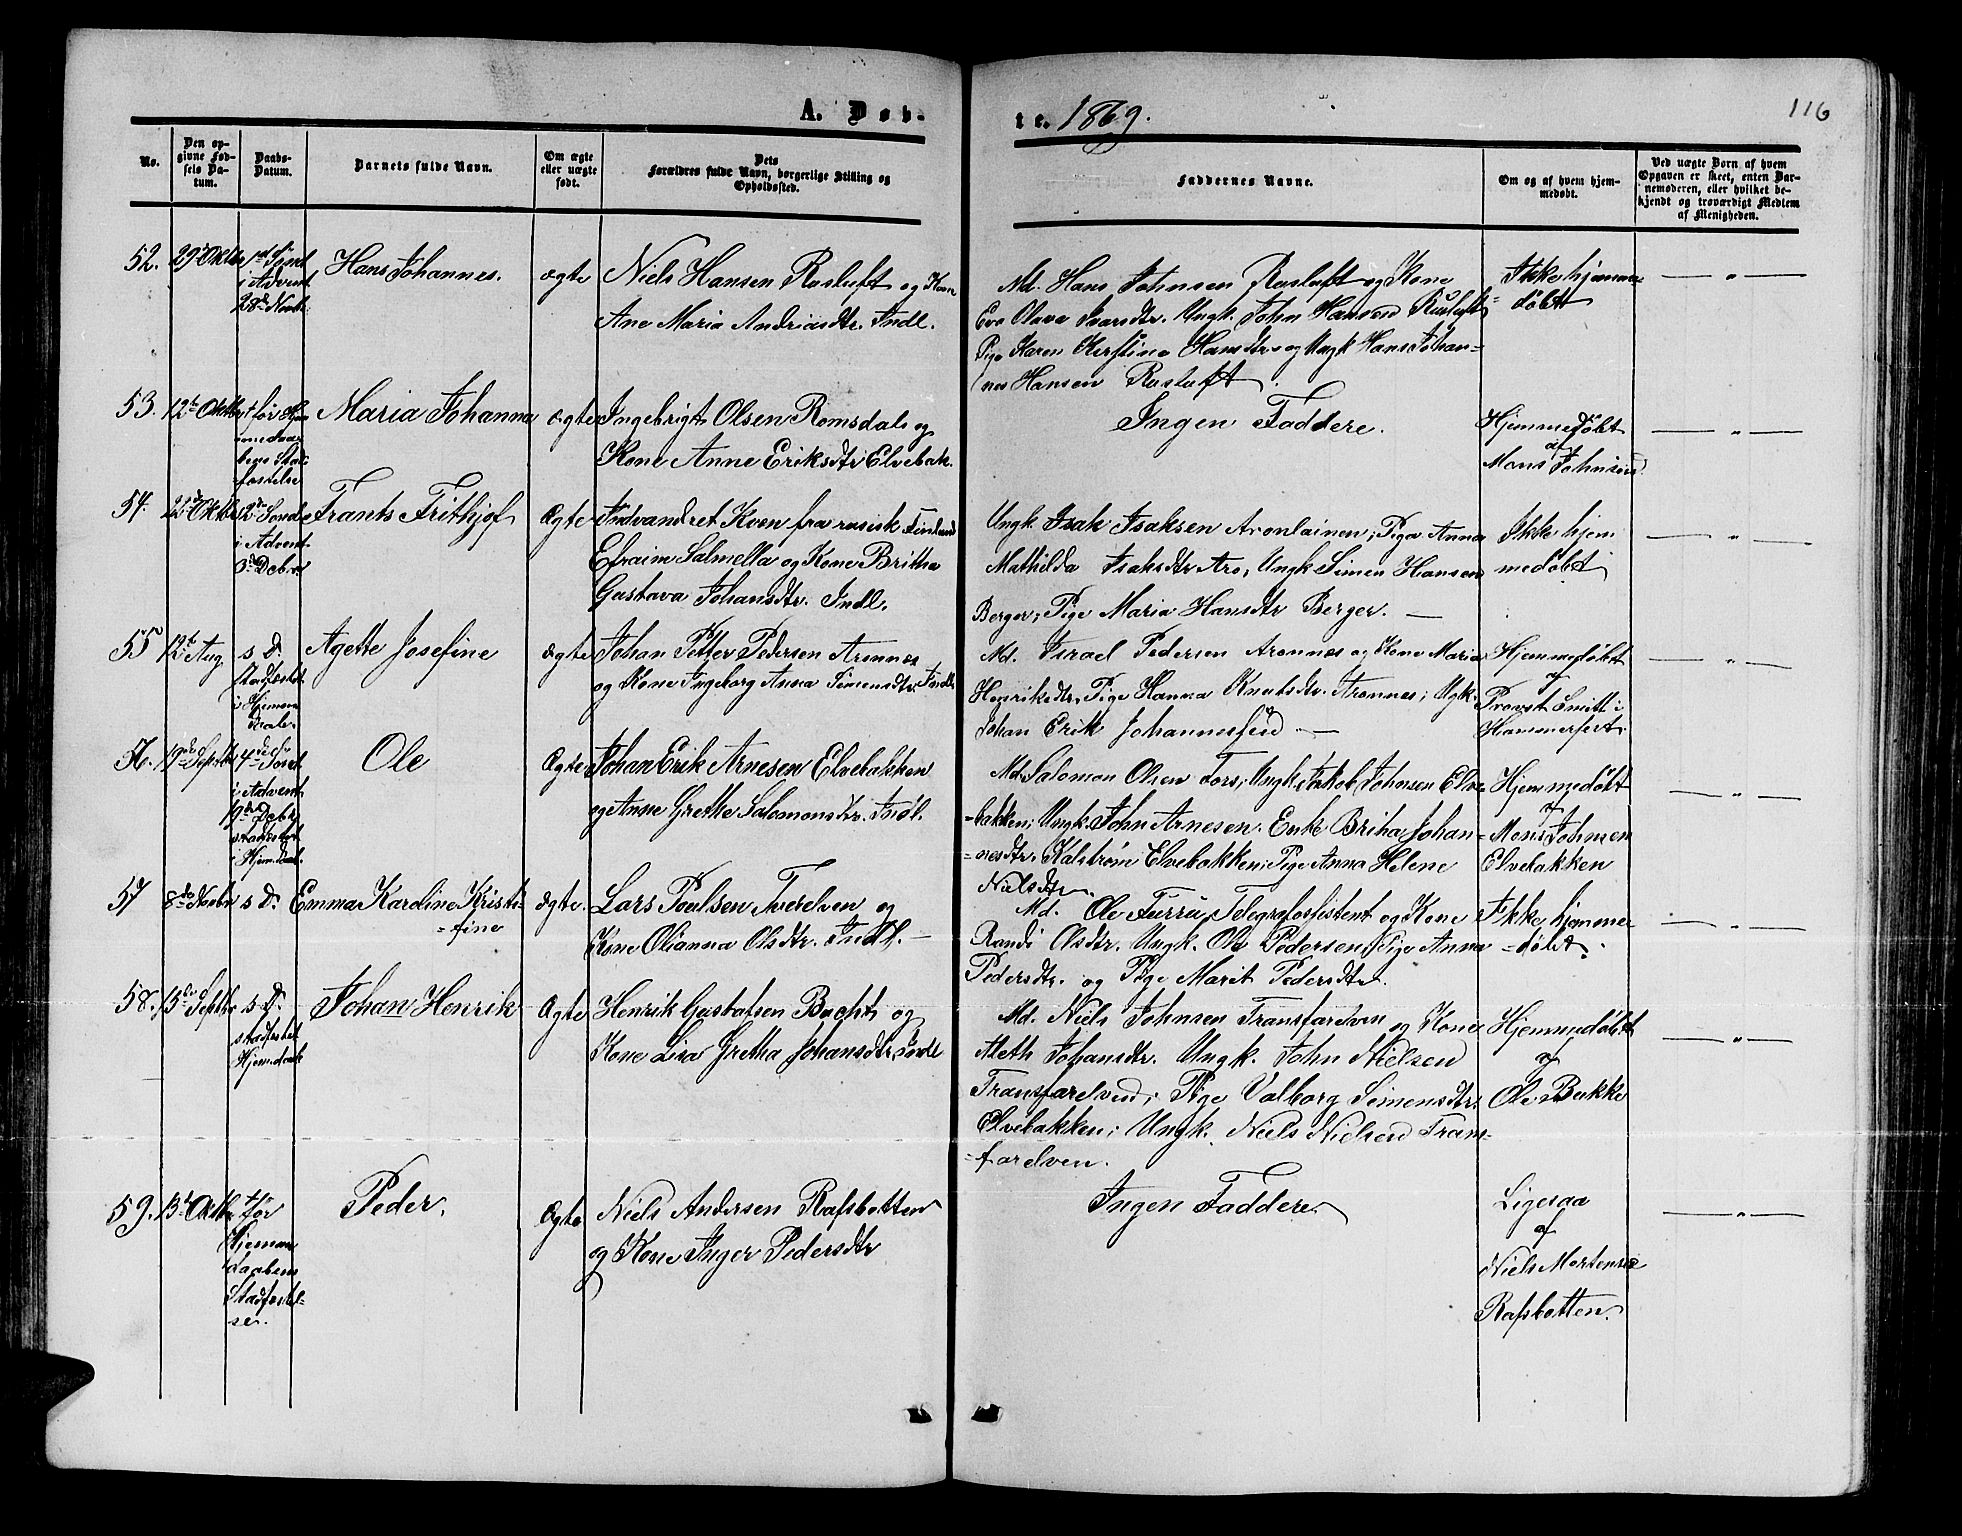 A. Døb-
te. 1869.
116
No.
Den op-
givne Fød-
sels Da-
tum.
Daabs-
Datum.
Barnets fulde Navn.
Om ægte
eller uægte
født.
Dets
Forældres fulde Navn, borgerlige Stilling og
Opholdssted.
Faddernes Navne.
Om og af hvem hjem-
medøbt.
Ved uægte Børn af hvem
Opgaven er skeet, enten Bar-
nemoderen, eller hvilket be-
kjendt og troværdigt Medlem
af Menigheden.
52.
Hans Johannes.
ægte
Niels Hansen Rusluft og Kone
Ane Maria Andriasdtr. Indl.
Md. Hans Johnsen Rusluft og Kone
Eva Olava Ivarsdtr. Ungk. John Hansen Rusluft
Pige Karen Kirstine Hansdtr og Ungk Hans Johan=
nes Hansen Rusluft.
Ikke hjemme-
døbt
53.
12te Oktbr
† før Hjem
Maria Johanna
ægte
Ingebrigt Olsen Romsdal og
Kone Anne Eriksdtr Elvebak.
Ingen Faddere.
Hjemmedøbt
af
Mons Johnsen
54.
22de Oktbr
2den Sønd
i Advent
Frants Frithjof
Ægte
Indvandret Kven fra rusisk Finland
Efraim Salmella og Kone Britha
Gustava Johansdtr. Indl.
Ungk Isak Isaksen Aronlainen; Pige Anna
Mathilda Isaksdtr Aro, Ungk Simen Hansen
Berger; Pige Maria Hansdtr Berger. —
Ikke hjem
medøbt
55
12te Aug.
s D.
stadfæstet
i Hjemme
Agette Josefine
ægte
Johan Petter Pedersen Aronnes
og Kone Ingeborg Anna Simensdtr. Indl.
Md. Israel Pedersen Aronnes og Kone Maria
Henriksdtr. Pige Hanna Knutsdtr. Aronnes; Ugk.
Johan Erik Johannesen —
Hjemmedøbt
af
Provst Smitt i
Hammerfest.
56.
19de Septbr
4de Sønd
i Advent
19de Debr
stadfæstet
i Hjem daab
Ole
Ægte
Johan Erik Arnesen Elvebakken
og Anne Grethe Salomonsdtr. Indl.
Md. Salomon Olsen Fors; Ungk Jakob Johansen Elve
=bakken; Ungk. John Arnesen. Enke Britha Johan=
=nesdtr. Kalstrøm Elvebakken; Pige Anna Helene
Nielsdtr.
Hjemmedøbt
af
Mons Johnsen
Elvebakken
57
8de Novbr
s D.
Emma Karoline Kristi=
=fine
ægte.
Lars Poulsen Tverelven og
Kone Olianna Olsdtr. Indl. —
Md. Ole Furru, Telegrafosistent og Kone
Randi Olsdtr. Ungk. Ole Pedersen; Pige Anna
Pedersdtr. og Pige Marit Pedersdtr.
Ikke hjemme
=døbt.
58.
15de Septbr
s D.
stadfæstet
Hjemdaab
Johan Henrik
Ægte
Henrik Gustafsen Bucht og
Kone Lisa Gretha Johansdtr. Indl
Md. Niels Johnsen Transfarelven og Kone
Aleth Johansdtr. Ungk. John Nielsen
Transfarelven; Pige Valborg Simensdtr.
Elvebakken; Ungk. Niels Nielsen Trans=
=farelven.
Hjemmedøbt
af
Ole Bakke
59.
13de Oktbr
† før
Hjemme
daabens
Stadfæstel=
se.
Peder.
Ægte
Niels Andersen Rafsbotten
og Kone Inger Pedersdtr
Ingen Faddere
Ligesaa
af
Niels Mortensen
Rafsbotten.